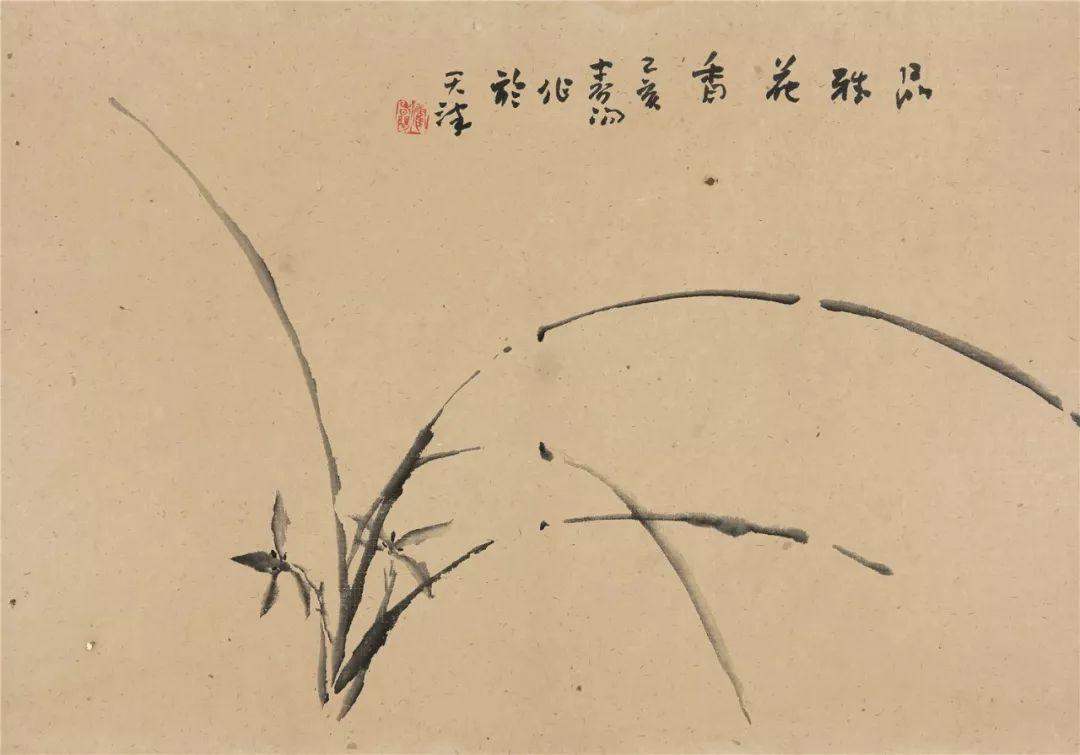 品雅花香
乙亥
春
作
於
天津